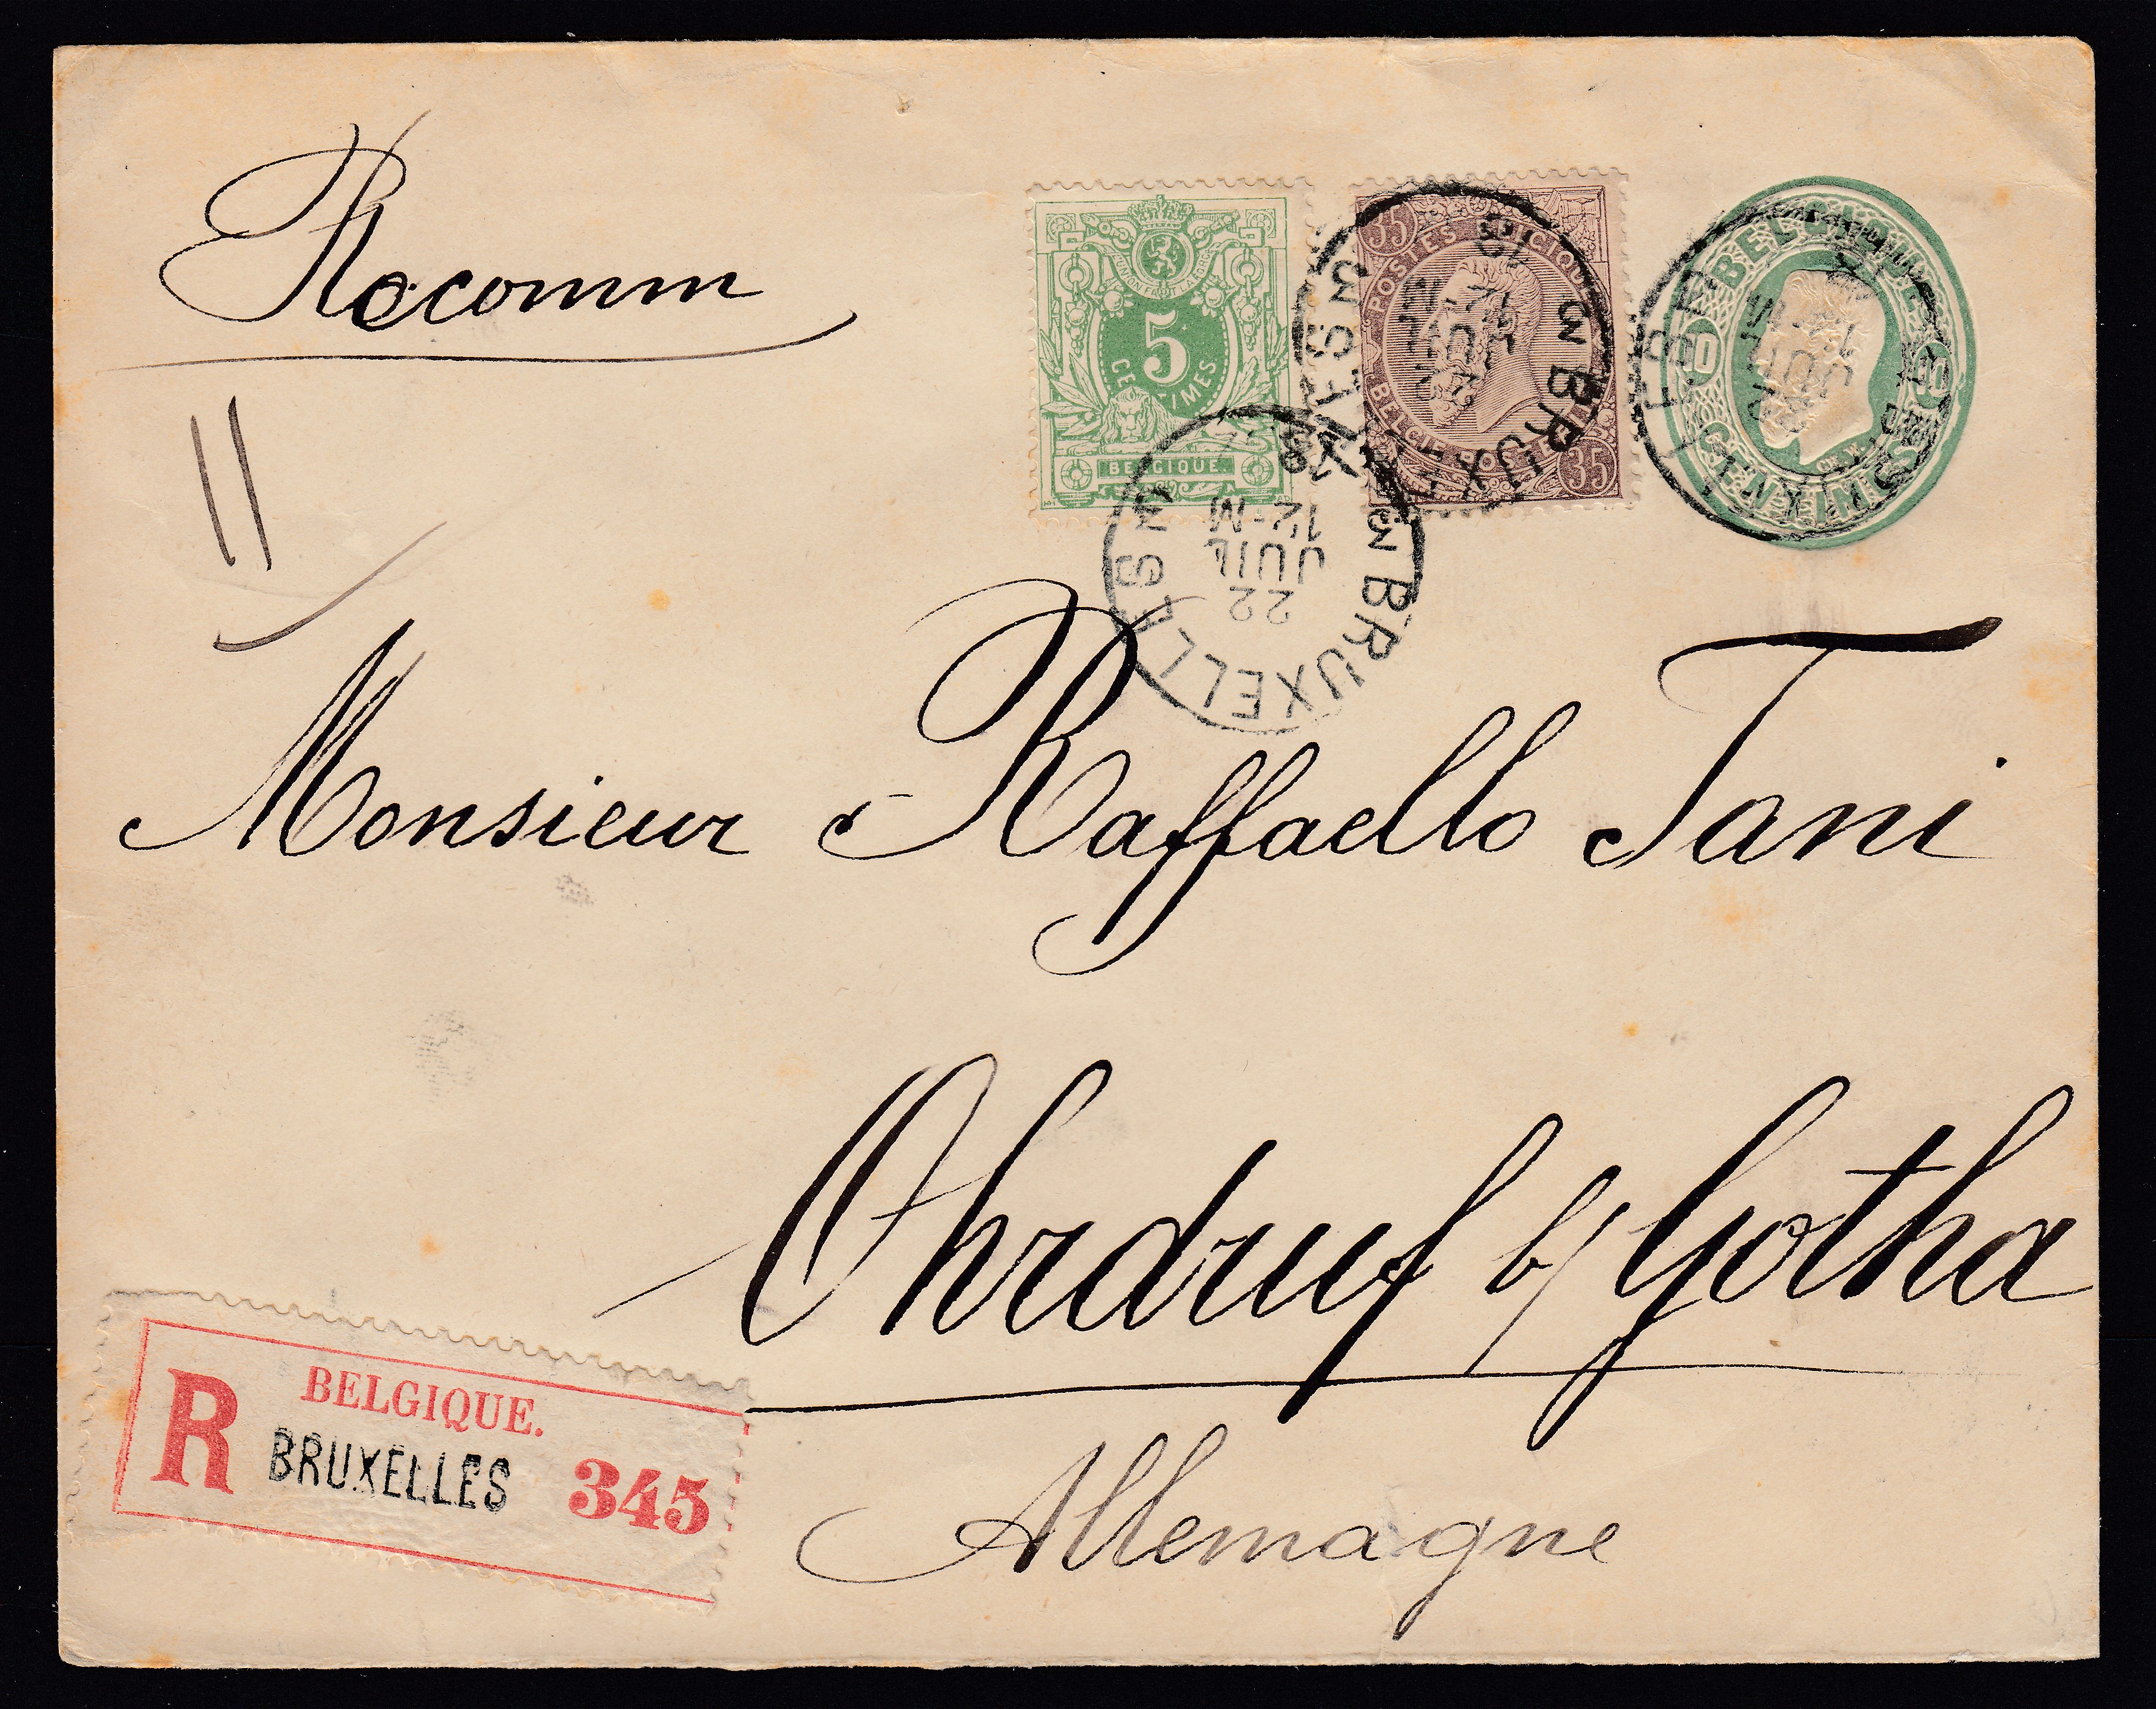 Recomm
11
5
CENTIMES
BELGIQUE
35
POSTES BELGIQUE
35
BELGIË POSTERIJEN
BELGIQUE
10
10
CENTIMES
3 BRUXELLES 3
22
JUIL
12-M
Monsieur Raffaello Tani
Ohrdruf b/ Gotha
Allemagne
R
BELGIQUE.
BRUXELLES
345